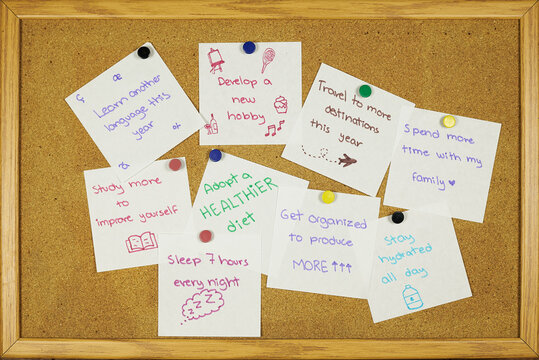 æ
ç
Learn another
language this
year
Develop a
new
hobby
Travel to more
destinations
this year
Spend more
time with my
family
Study more
to
improve yourself
Adopt a
HEALTHIER
diet
Get organized
to produce
MORE ↑↑↑
Stay
hydrated
all day
Sleep 7 hours
every night
ZZZ